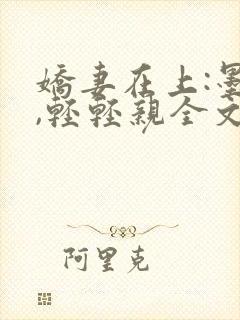 嬌妻在上:墨
,輕輕親全文
阿里克